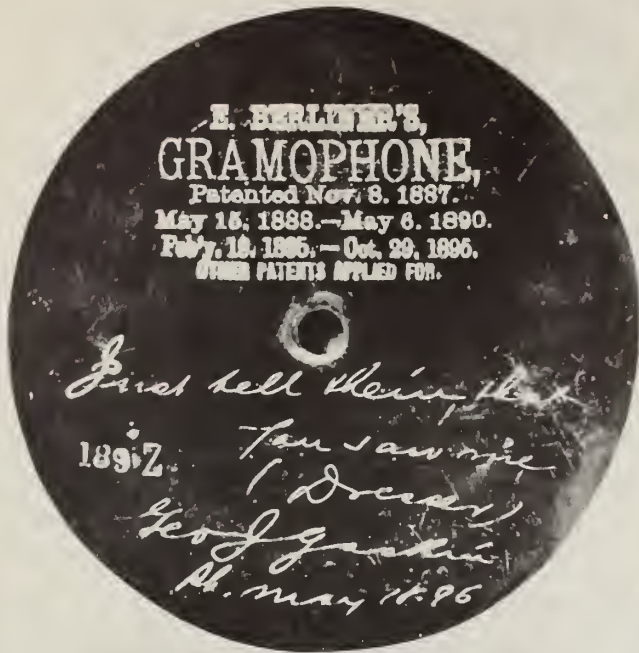 E. BERLINER'S,
GRAMOPHONE,
Patented Nov. 8. 1887.
May 15, 1888.—May 6. 1890.
Feb'y, 19. 1895.—Oct. 29, 1895.
OTHER PATENTS APPLIED FOR.
Just tell them, that
You saw me
189·Z
(Dresser)
Geo J Gaskin
Ph. May 18.96